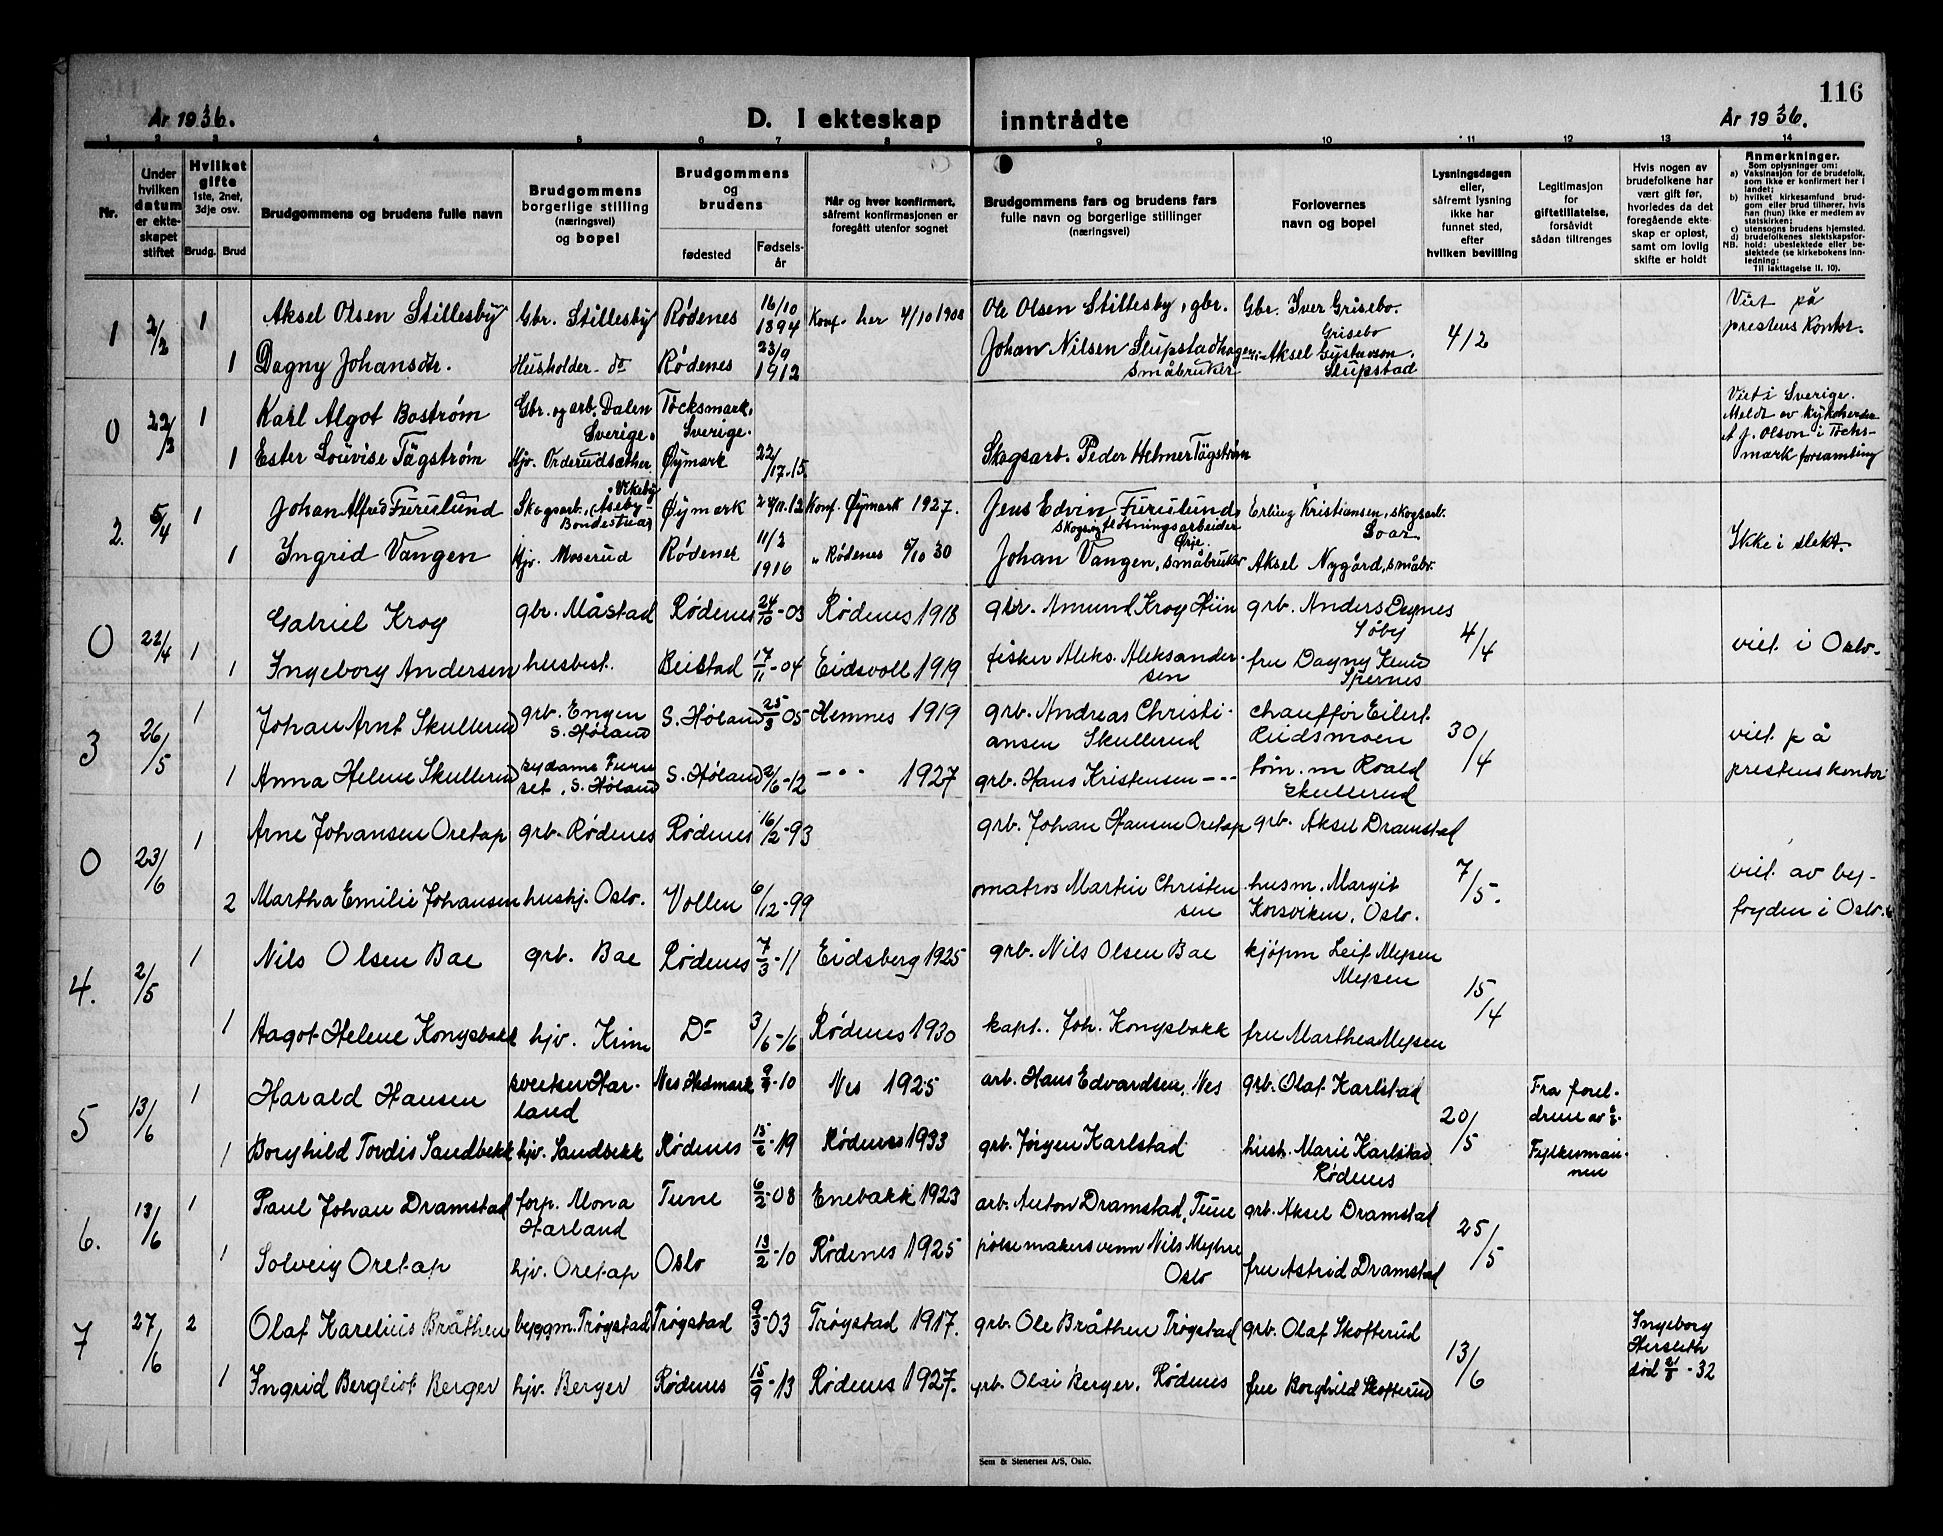 116
År 1936.
D. I ekteskap inntrådte
År 1936.
1 2 3 4 5 6 7 8 9 10 11 12 13 14
Nr.
Under hvilken datum er ekteskapet stiftet
Hvilket gifte 1ste, 2net, 3dje osv.
Brudg. Brud
Brudgommens og brudens fulle navn
Brudgommens borgerlige stilling (næringsvei) og bopel
Brudgommens og brudens
fødested
Fødselsår
Når og hvor konfirmert, såfremt konfirmasjonen er foregått utenfor sognet
Brudgommens fars og brudens fars fulle navn og borgerlige stillinger (næringsvei)
Forlovernes navn og bopel
Lysningsdagen eller, såfremt lysning ikke har funnet sted, efter hvilken bevilling
Legitimasjon for giftetillatelse, forsåvidt sådan tiltrenges
Hvis nogen av brudefolkene har vært gift før, hvorledes da det foregående ekteskap er opløst, samt om lovlig skifte er holdt
Anmerkninger.
Som oplysninger om:
a) Vaksinasjon for de brudefolk, som ikke er konfirmert her i landet;
b) hvilket kirkesamfund brudgom eller brud tilhører, hvis han (hun) ikke er medlem av statskirken;
c) utensogns brudens hjemsted.
d) brudefolkenes slektskapsforhold: ubeslektede eller beslektede (se kirkebokens innledning:
NB. Til iakttagelse II. 10).
1 2/2 1 Aksel Olsen Stillesby Gbr. Stillesby Rødenes 16/10 1894 Konf. her 4/10 1908 Ole Olsen Stillesby, gbr. Gbr. Iver Grisebo. Grisebo 4/2 Viet på prestens kontor.
1 Dagny Johansdtr. Husholder. do Rødenes 23/9 1912 Johan Nilsen Slupstadhagen småbruker Aksel Gustavson. Slupstad
0 22/3 1 Karl Algot Bostrøm Gbr. og arb. Dalen Sverige. Tocksmark, Sverige. Viet i Sverige. Meldt av kykoherden J. Olson i Tocksmark forsamling
1 Ester Louvise Tägstrøm Hjv. Orderudsæther. Øymark 22/17-15. Skogsarb. Peder Helmer Tägstrøm
2. 5/4 1 Johan Alfred Furulund Skogsarb. Vikeby Øymark 24/11.12 Konf. Øymark 1927. Jens Edvin Furulund skogs og fløtningsarbeider Ørje. Erling Kristiansen, skogsarb. Ikke i slekt.
1 Ingrid Vangen Hjv. Moserud Rødenes 11/3 1916 " Rødenes 5/10 30 Johan Vangen, småbruker Aksel Nygård, småbr.
0 22/4 1 Gabriel Krog gbr. Måstad Rødenes 24/10-03 Rødenes 1918 gbr. Amund Krog Hiin grb. Anders Deynes Søby 4/4 viet i Oslo.
1 Ingeborg Andersen husbest. Beistad 17/11-04 Eidsvoll 1919 fisker Aleks. Aleksandersen fru Dagny
3 26/5 1 Johan Arnt Skullerud grb. Engen S. Høland S. Høland 25/3 05 Hemnes 1919 grb. Andreas Christiansen Skullerud chauffør Eilert Riidsmoen 30/4 viet på prestens kontor
1 Anna Helene Skullerud sydame Furuset, S. Høland S. Høland 2/6-12 - " - 1927 grb. Hans Kristensen - " - tøm.m Roald Skullerud
0 23/6 1 Arne Johansen Oretap grb. Rødenes Rødenes 16/2-93 grb. Johan Hansen Oretap grb. Aksel Dramstad 7/5. viet av byfogden i Oslo.
2 Martha Emilie Johansen hushj. Oslo. Vollen 6/12-99 matros Martin Christensen husm. Margit Korsviken, Oslo.
4. 2/5 1 Nils Olsen Bae grb. Bae Rødenes 7/3-11 Eidsberg 1925 grb. Nils Olsen Bae kjøpm Leif Mysen Mysen 15/4
1 Aagot Helene Kongsbakk hjv. Krim Do 3/6-16 Rødenes 1930 kapt. Joh. Kongsbakk fru Marthea Mysen
5 13/6 1 Harald Hansen sveitser Harland Nes Hedmark 9/9-10 Nes 1925 arb. Hans Edvardsen, Nes grb. Olaf Karlstad 20/5 Fra foreldrene av
1 Borghild Tordis Sandbekk hjv. Sandbekk Rødenes 15/2-19 Rødenes 1933 grb. Jørgen Karlstad hush. Marie Karlstad Rødenes Fylkesmannen
6. 13/6 1 Paul Johan Dramstad forp. Mona Harland Tune 6/2-08 Enebakk 1923 arb. Anton Dramstad, Tune grb. Aksel Dramstad 25/5
1 Solveig Oretap hjv. Oretap Oslo 13/2-10 Rødenes 1925 pølsemakersvenn Nils Myhre Oslo fru Astrid Dramstad
7 27/6 2 Olaf Karelius Bråthen byggm. Trøgstad Trøgstad 9/3-03 Trøgstad 1917. grb. Ole Bråthen Trøgstad grb. Olaf Skofterud 13/6 Ingeborg Hersleth død 21/8-32
1 Ingrid Bergliot Berger hjv. Berger Rødenes 15/9-13 Rødenes 1927. grb. Olai Berger. Rødenes fru Borghild Skofterud
Sem & Stenersen A/S, Oslo.